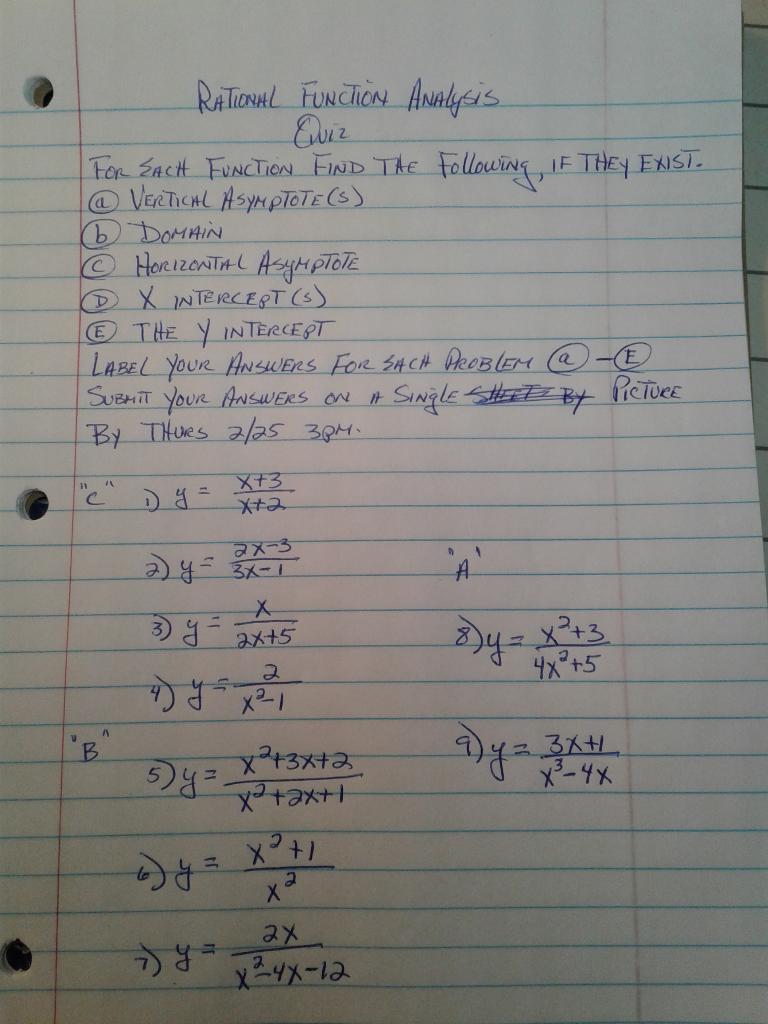 RATIONAL FUNCTION ANALYSIS
QUIZ
FOR EACH FUNCTION FIND THE FOLLOWING, IF THEY EXIST.
(a) VERTICAL ASYMPTOTE(S)
(b) DOMAIN
(C) HORIZONTAL ASYMPTOTE
(D) X INTERCEPT(S)
(E) THE Y INTERCEPT
LABEL YOUR ANSWERS FOR EACH PROBLEM (a) - (E)
SUBMIT YOUR ANSWERS ON A SINGLE PICTURE
BY THURS 2/25 3PM.
"C" 1) y = (x+3)/(x+2)
2) y = (2x-3)/(3x-1)
3) y = x/(2x+5)
4) y = 2/(x²-1)
"B"
5) y = (x²+3x+2)/(x²+2x+1)
6) y = (x²+1)/x²
7) y = 2x/(x²-4x-12)
"A"
8) y = (x²+3)/(4x²+5)
9) y = (3x+1)/(x³-4x)